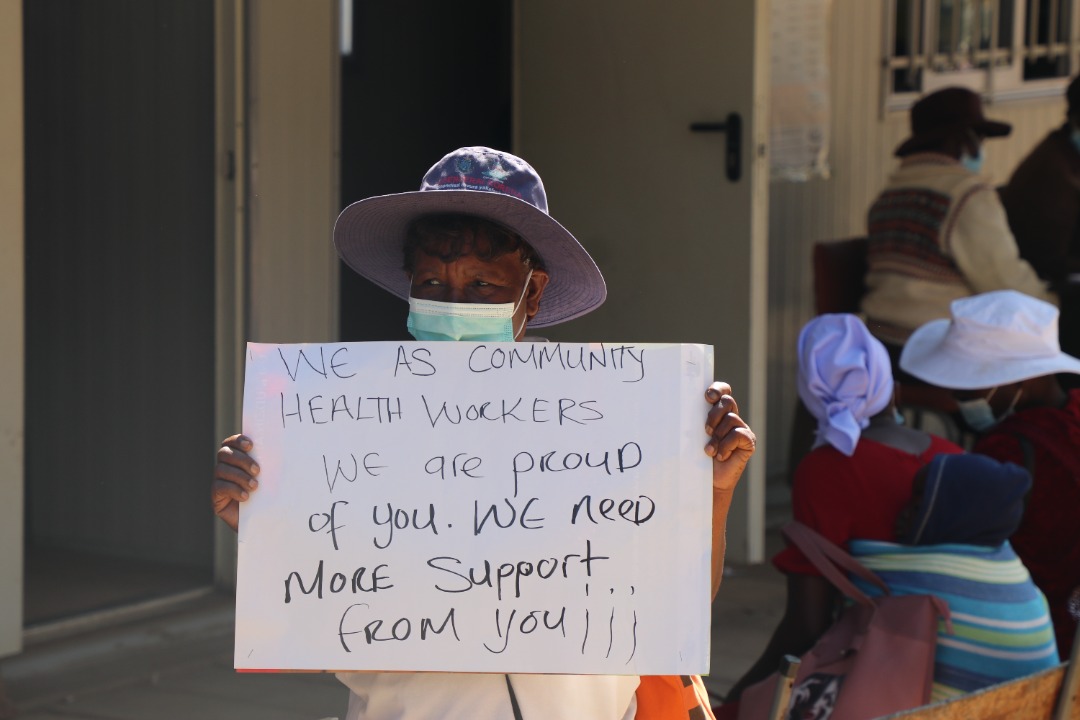 WE AS COMMUNITY
HEALTH WORKERS
WE are proud
of you. WE need
MORE Support
FROM you!!!